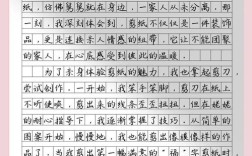 纸，仿佛舅舅就在身边，一家人从未分离，那
一刻，我深刻体会到，剪纸不仅仅是一件装饰
品，更是连接亲人情感的纽带，它让不能团聚
的家人，在心底感受到彼此的温暖。
为了亲身体验剪纸的魅力，我也拿起剪刀
尝试创作，一开始，我笨手笨脚，剪刀在纸上
不听使唤，剪出来的线条歪歪扭扭，但在姥姥
的耐心指导下，我逐渐掌握了技巧，从简单的
图案开始，慢慢地，我也能剪出像模像样的作
品了，当我剪出第一幅完整的“福”字剪纸时